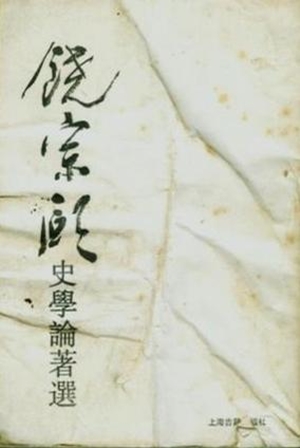 饒宗頤史學論著選
上海古籍 版社